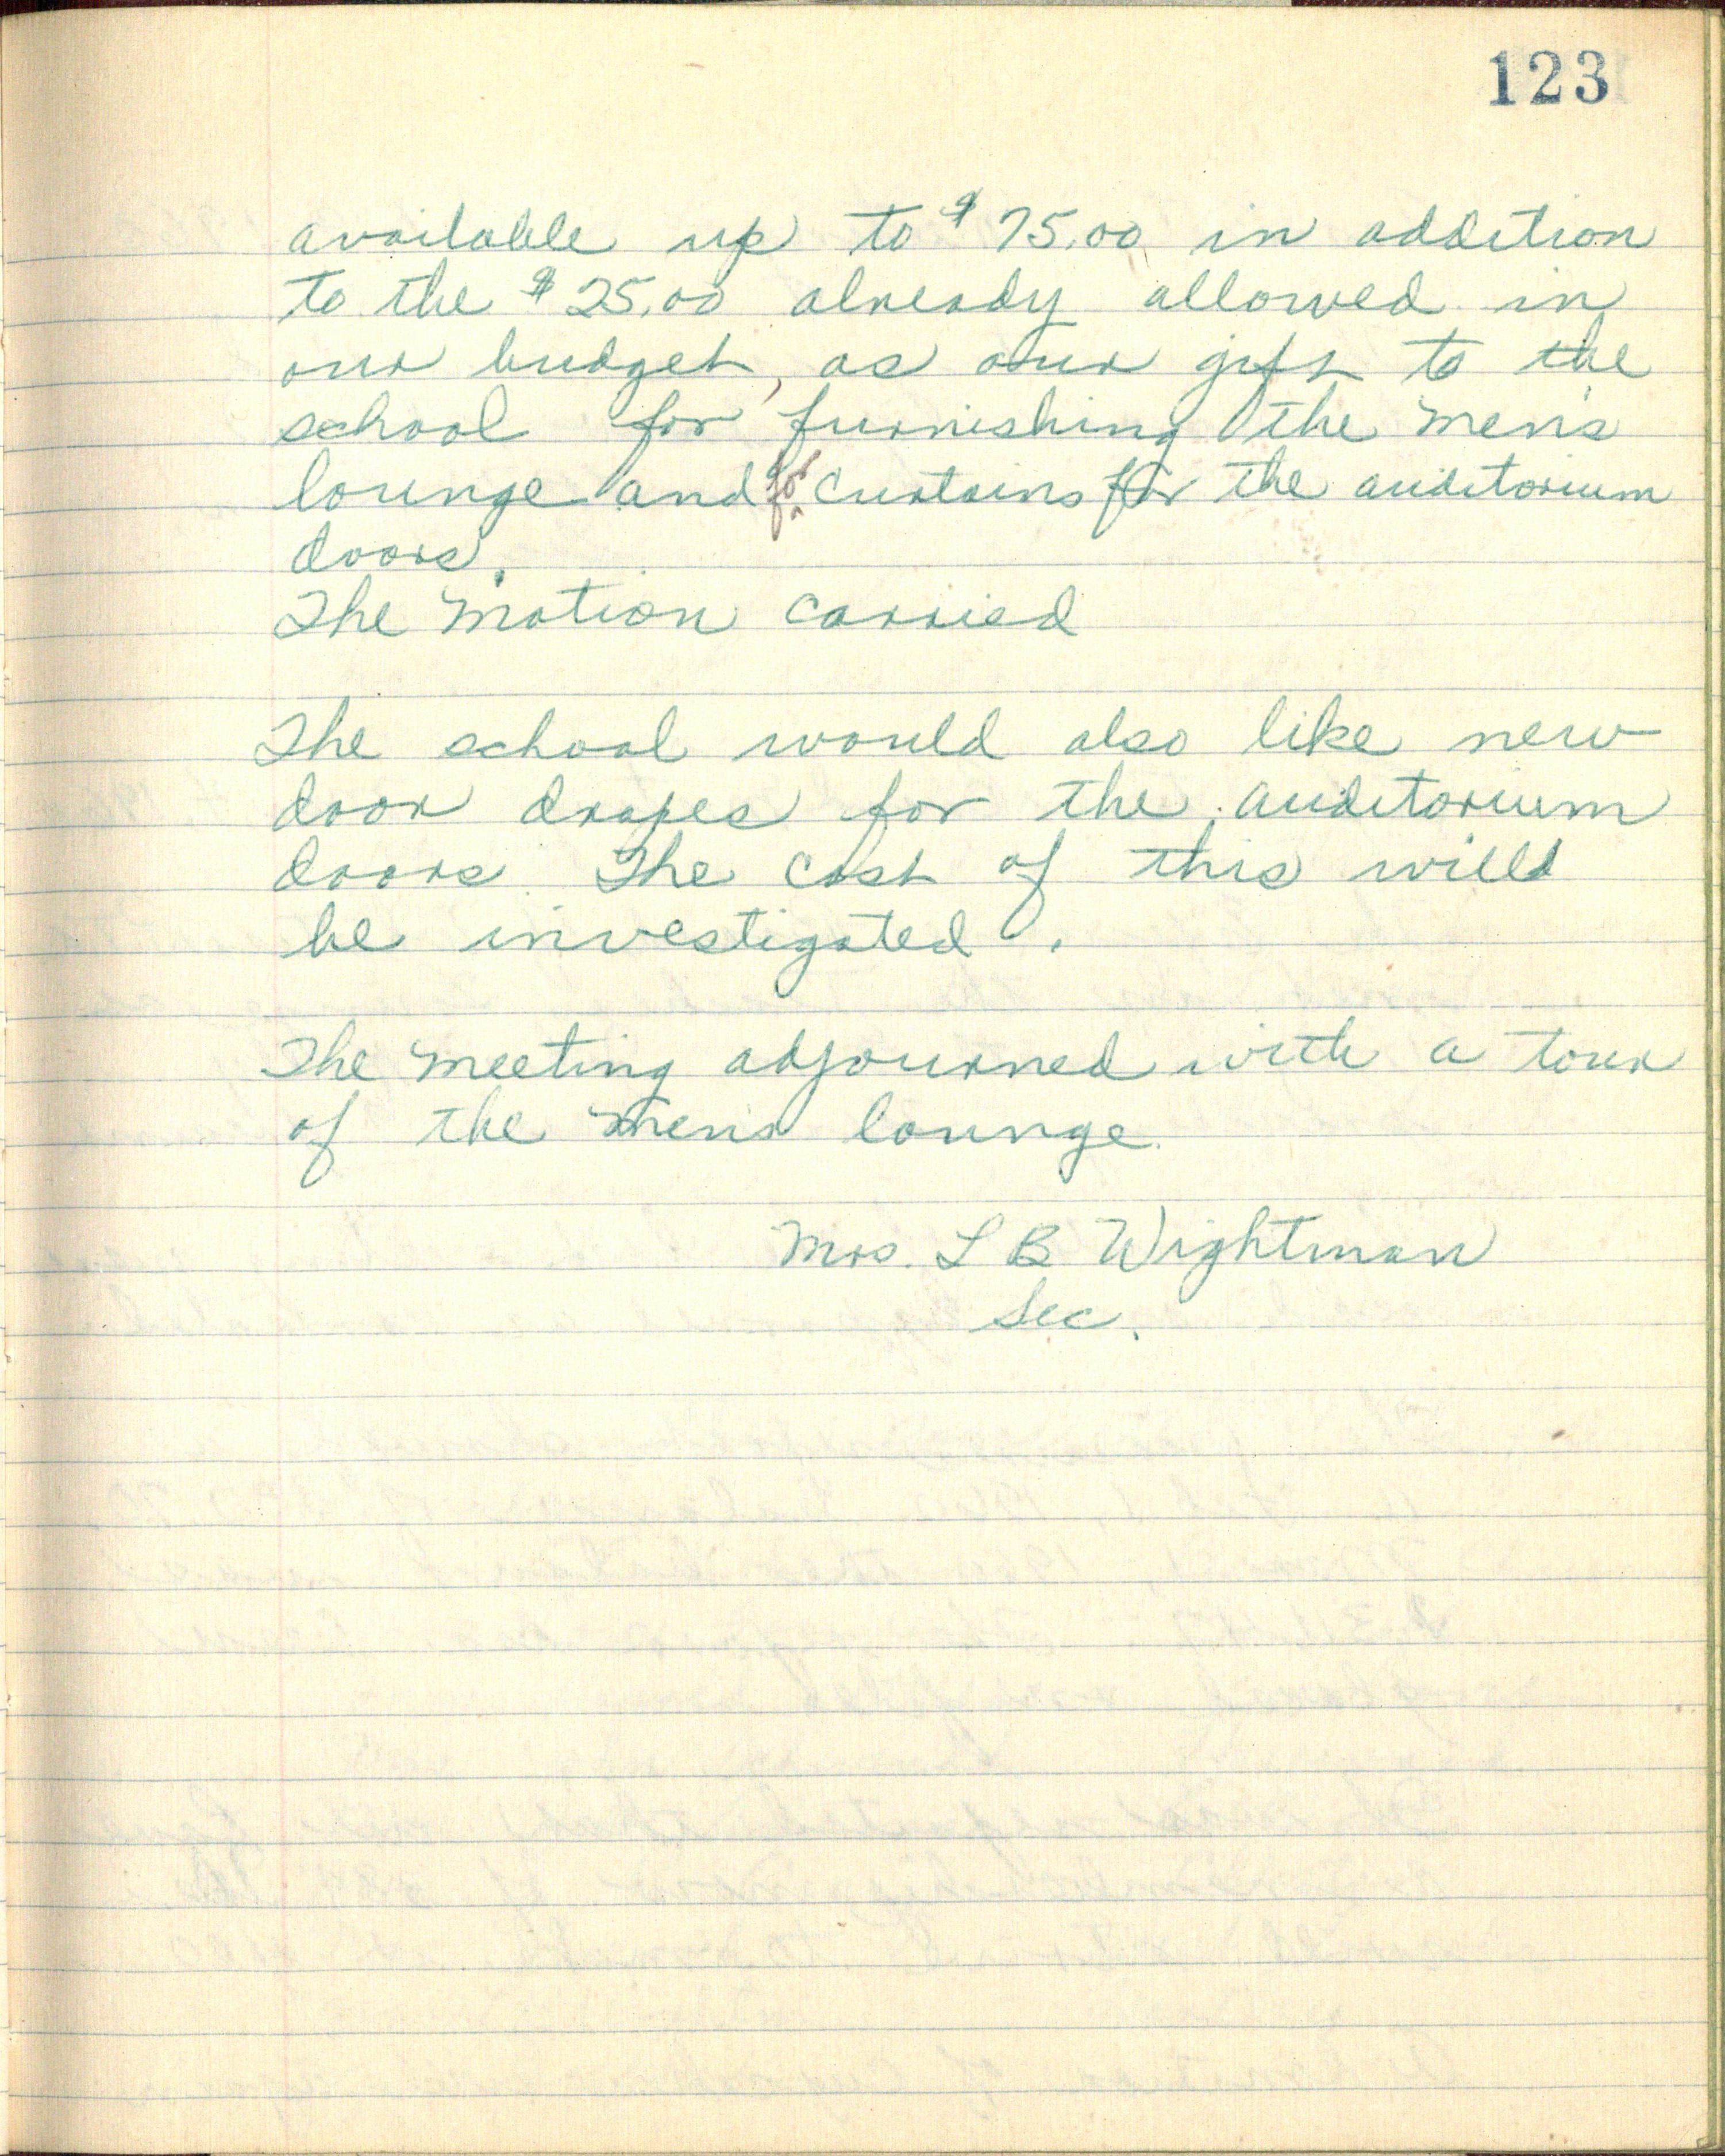 123
available up to $75.00 in addition
to the $25.00 already allowed in
our budget, as our gift to the
school for furnishing the men's
lounge and for curtains for the auditorium
doors.
The motion carried
The school would also like new
door drapes for the auditorium
doors. The cost of this will
be investigated.
The meeting adjourned with a tour
of the mens lounge.
Mrs. L B Wightman
Sec.